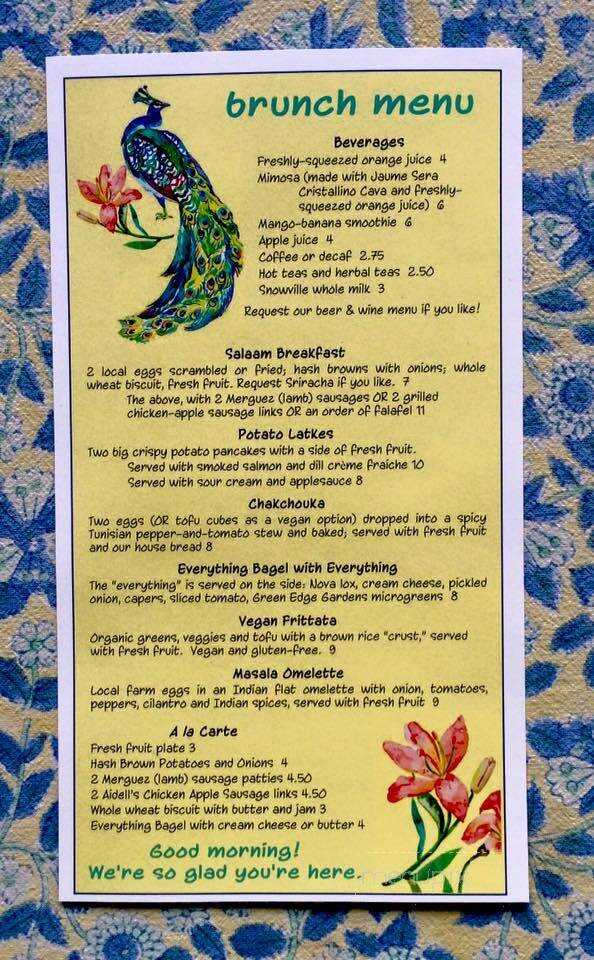 brunch menu
Beverages
Freshly-squeezed orange juice 4
Mimosa (made with Jaume Sera
Cristallino Cava and freshly-
squeezed orange juice) 6
Mango-banana smoothie 6
Apple juice 4
Coffee or decaf 2.75
Hot teas and herbal teas 2.50
Snowville whole milk 3
Request our beer & wine menu if you like!
Salaam Breakfast
2 local eggs scrambled or fried; hash browns with onions; whole
wheat biscuit, fresh fruit. Request Sriracha if you like. 7
The above, with 2 Merguez (lamb) sausages OR 2 grilled
chicken-apple sausage links OR an order of falafel 11
Potato Latkes
Two big crispy potato pancakes with a side of fresh fruit.
Served with smoked salmon and dill crème fraiche 10
Served with sour cream and applesauce 8
Chakchouka
Two eggs (OR tofu cubes as a vegan option) dropped into a spicy
Tunisian pepper-and-tomato stew and baked; served with fresh fruit
and our house bread 8
Everything Bagel with Everything
The "everything" is served on the side: Nova lox, cream cheese, pickled
onion, capers, sliced tomato, Green Edge Gardens microgreens 8
Vegan Frittata
Organic greens, veggies and tofu with a brown rice "crust," served
with fresh fruit. Vegan and gluten-free. 9
Masala Omelette
Local farm eggs in an Indian flat omelette with onion, tomatoes,
peppers, cilantro and Indian spices, served with fresh fruit 9
A la Carte
Fresh fruit plate 3
Hash Brown Potatoes and Onions 4
2 Merguez (lamb) sausage patties 4.50
2 Aidell's Chicken Apple Sausage links 4.50
Whole wheat biscuit with butter and jam 3
Everything Bagel with cream cheese or butter 4
Good morning!
We're so glad you're here.